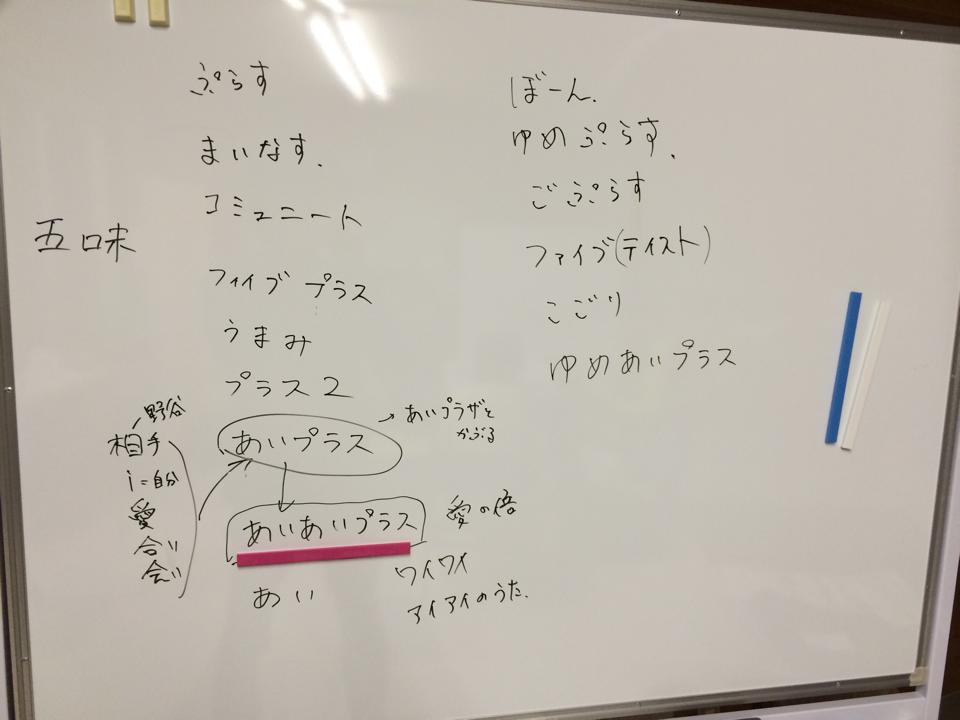 五味
ぷらす
まいなす.
コミュニート
ファイブプラス
うまみ
プラス2
あいプラス
→あいプラザと
かぶる
野谷
相手
i=自分
愛
合い
会い
あいあいプラス
愛の倍
あい
ワイワイ
アイアイのうた.
ぼーん.
ゆめぷらす.
ごぷらす
ファイブ(テイスト)
こごり
ゆめあいプラス